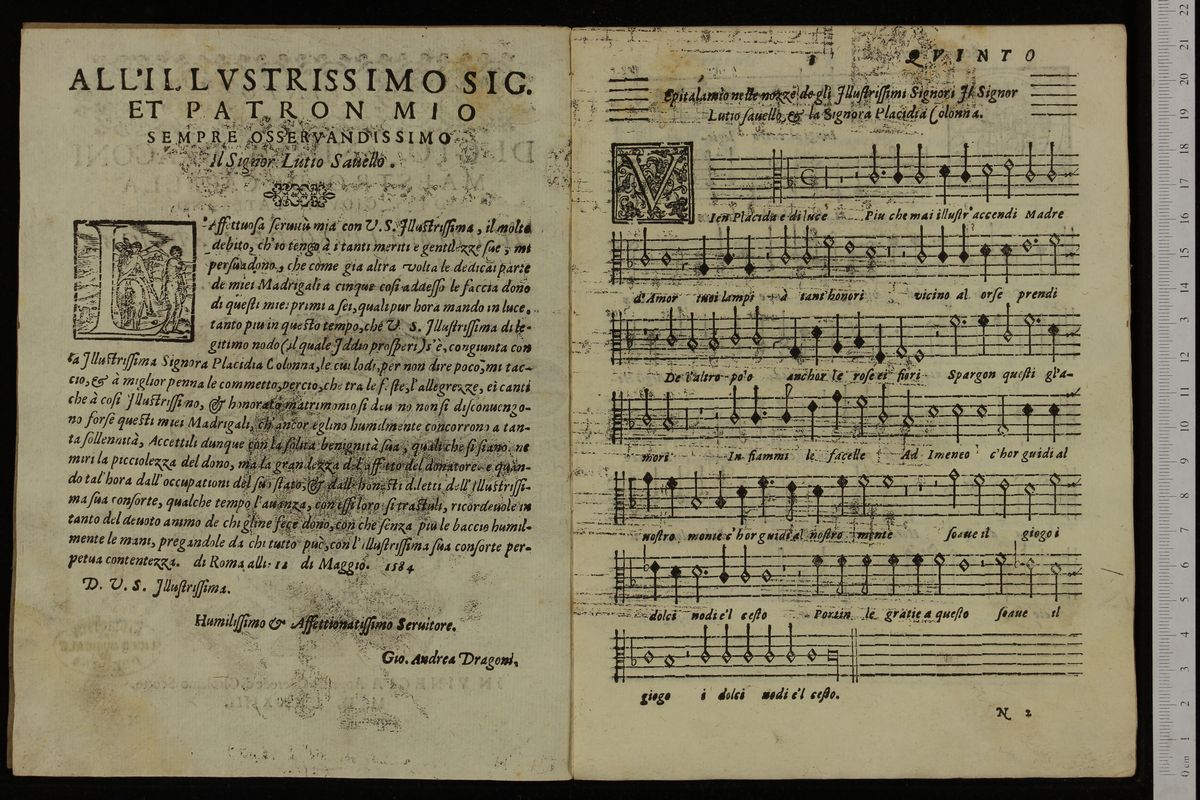 ALL'ILLVSTRISSIMO SIG.
ET PATRON MIO
SEMPRE OSSERVANDISSIMO
Il Signor Lutio Sauello.
L'Affettuosa seruitù mia con V. S. Illustrissima, il molto
debito, ch'io tengo à i tanti meriti e gentilezze sue, mi
persuadono, che come gia altra volta le dedicai parte
de miei Madrigali a cinque cosi adesso le faccia dono
di questi miei primi a sei, quali pur hora mando in luce,
tanto piu in questo tempo, che V. S. Illustrissima di le-
gitimo nodo (il quale Iddio prosperi) s'è, congiunta con
la Illustrissima Signora Placidia Colonna, le cui lodi, per non dire poco, mi tac-
cio, & à miglior penna le commetto, percio, che tra le feste, l'allegrezze, ei canti
che à cosi Illustrissimo, & honorato matrimonio si deuono non si disconuengo-
no forse questi miei Madrigali, ch'ancor eglino humilmente concorrono a tan-
ta sollennità, Accettili dunque con la solita benignità sua, quali che si siano, ne
miri la picciolezza del dono, ma la grandezza dell'affetto del donatore e quan-
do tal'hora dall'occupationi del suo stato, & dalli honesti diletti dell'Illustrissi-
ma sua consorte, qualche tempo l'auanza, con essi loro si trastuli, ricordeuole in
tanto del deuoto animo de chi gline fece dono, con che senza piu le baccio humil-
mente le mani, pregandole da chi tutto può, con l'illustrissima sua consorte per-
petua contentezza. di Roma alli 12 di Maggio. 1584
D. V. S. Illustrissima.
Humilissimo & Affettionatissimo Seruitore.
Gio. Andrea Dragoni.
1 QVINTO
Epitalamio nelle nozze de gli Illustrissimi Signori Il Signor
Lutio sauello, & la Signora Placidia Colonna.
VIen Placida e di luce Piu che mai illustr' accendi Madre
d'Amor tuoi lampi à tant'honori vicino al orse prendi
De l'altro polo anchor le rose ei fiori Spargon questi gl'a-
mori In fiammi le facelle Ad Imeneo c'hor guidi al
nostro monte c'hor guidi al nostro mente soaue il giogo i
dolci nodi e'l cesto Portin le gratie a questo soaue il
giogo i dolci nodi e'l cesto.
N 2